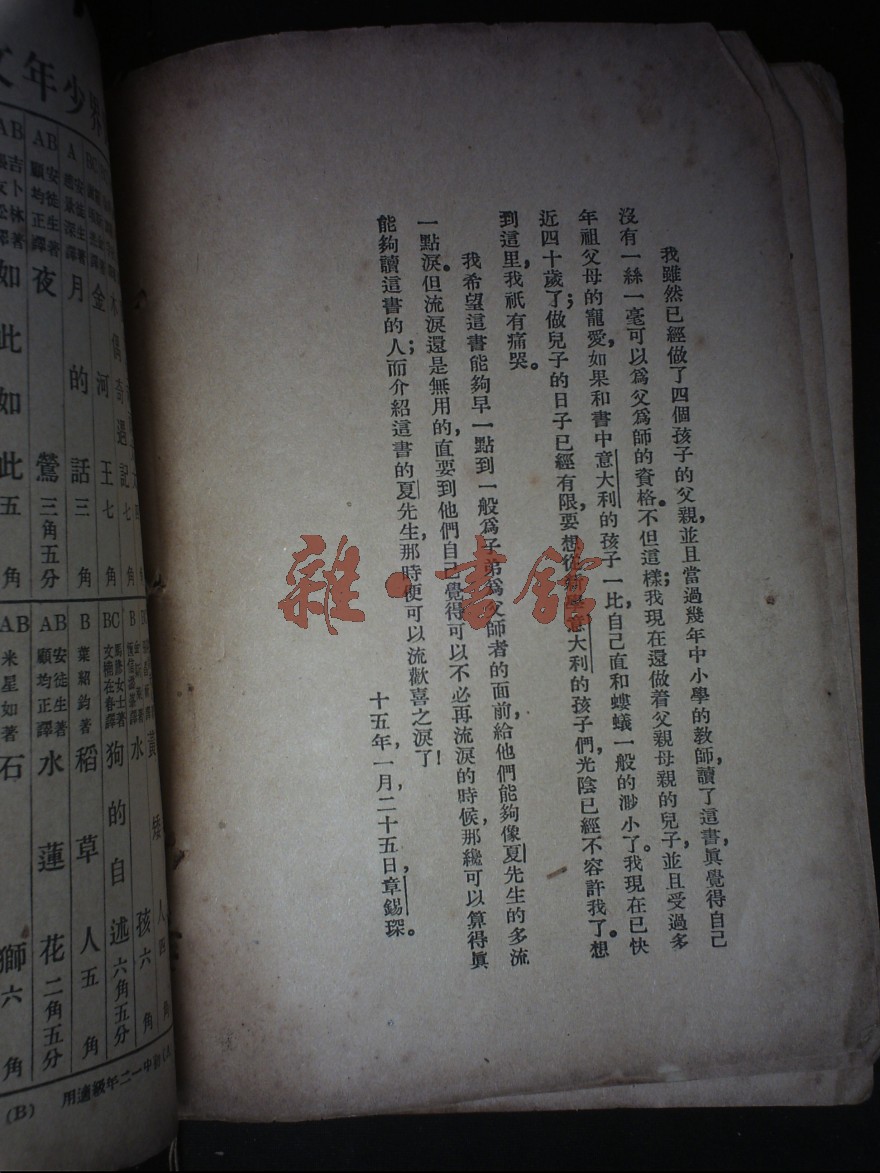 我雖然已經做了四個孩子的父親，並且當過幾年中小學的教師，讀了這書，眞覺得自己
沒有一絲一毫可以爲父爲師的資格。不但這樣；我現在還做着父親母親的兒子，並且受過多
年祖父母的寵愛，如果和書中意大利的孩子一比，自己直和螻蟻一般的渺小了。我現在已快
近四十歲了；做兒子的日子已經有限，要想從新學意大利的孩子們，光陰已經不容許我了。想
到這里，我祇有痛哭。
我希望這書能夠早一點到一般爲子弟爲父師者的面前，給他們能夠像夏先生的多流
一點淚。但流淚還是無用的，直要到他們自己覺得可以不必再流淚的時候，那纔可以算得眞
能夠讀這書的人；而介紹這書的夏先生，那時便可以流歡喜之淚了！
十五年，一月，二十五日，章錫琛。
雜·書館
年少界
木偶奇遇記 七角
金河王 七角
A 安徒生著 趙景深譯 月的話 三角
AB 安徒生著 顧均正譯 夜鶯 三角五分
AB 吉卜林著 張友松譯 如此如此 五角
矮人 四角
B 水孩 六角
BC 狗的自述 六角五分
B 葉紹鈞著 稻草人 五角
AB 安徒生著 顧均正譯 水蓮花 二角五分
AB 米星如著 石獅 六角
中一二年級適用
(B)